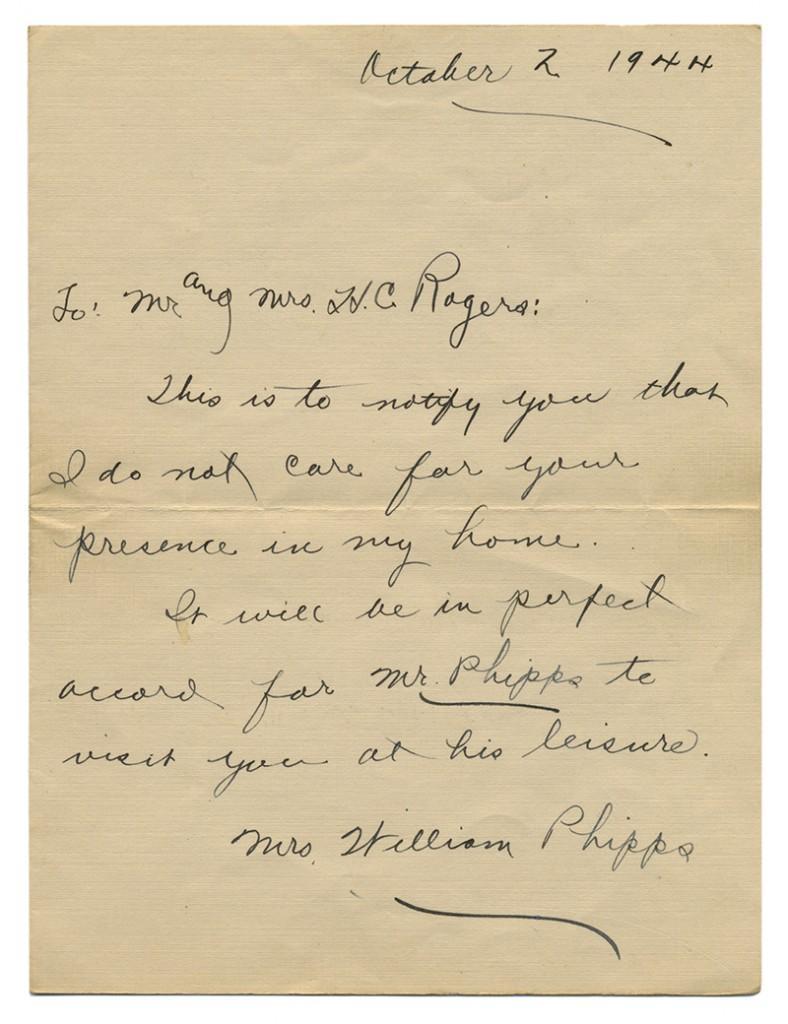 October 2 1944
To: Mr and Mrs. H.C. Rogers:
This is to notify you that
I do not care for your
presence in my home.
It will be in perfect
accord for Mr. Phipps to
visit you at his leisure.
Mrs. William Phipps